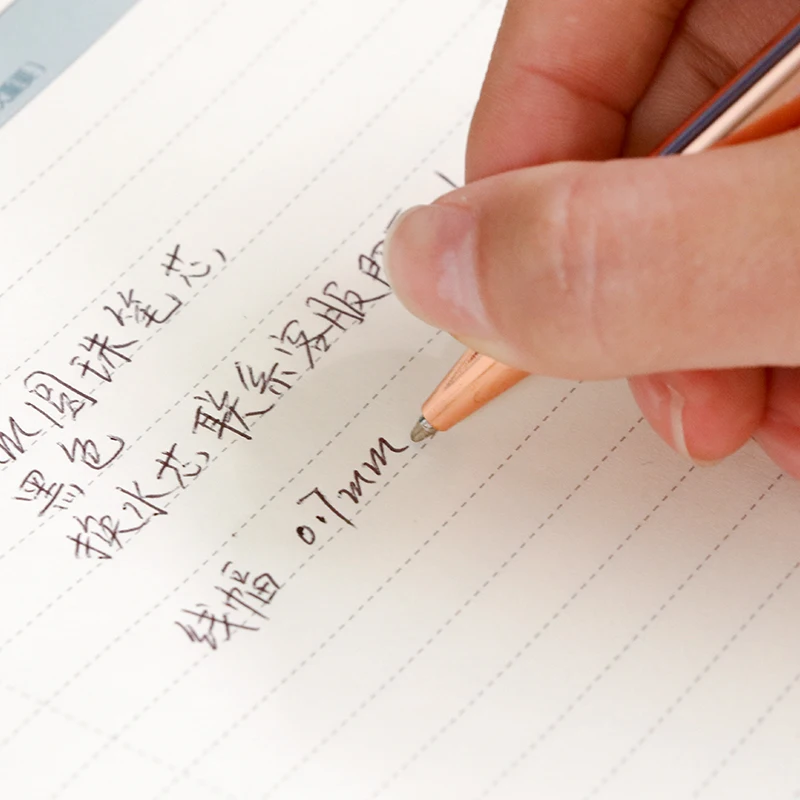 m圆珠笔芯,
黑色
换水芯联系客服即
线幅 0.7mm